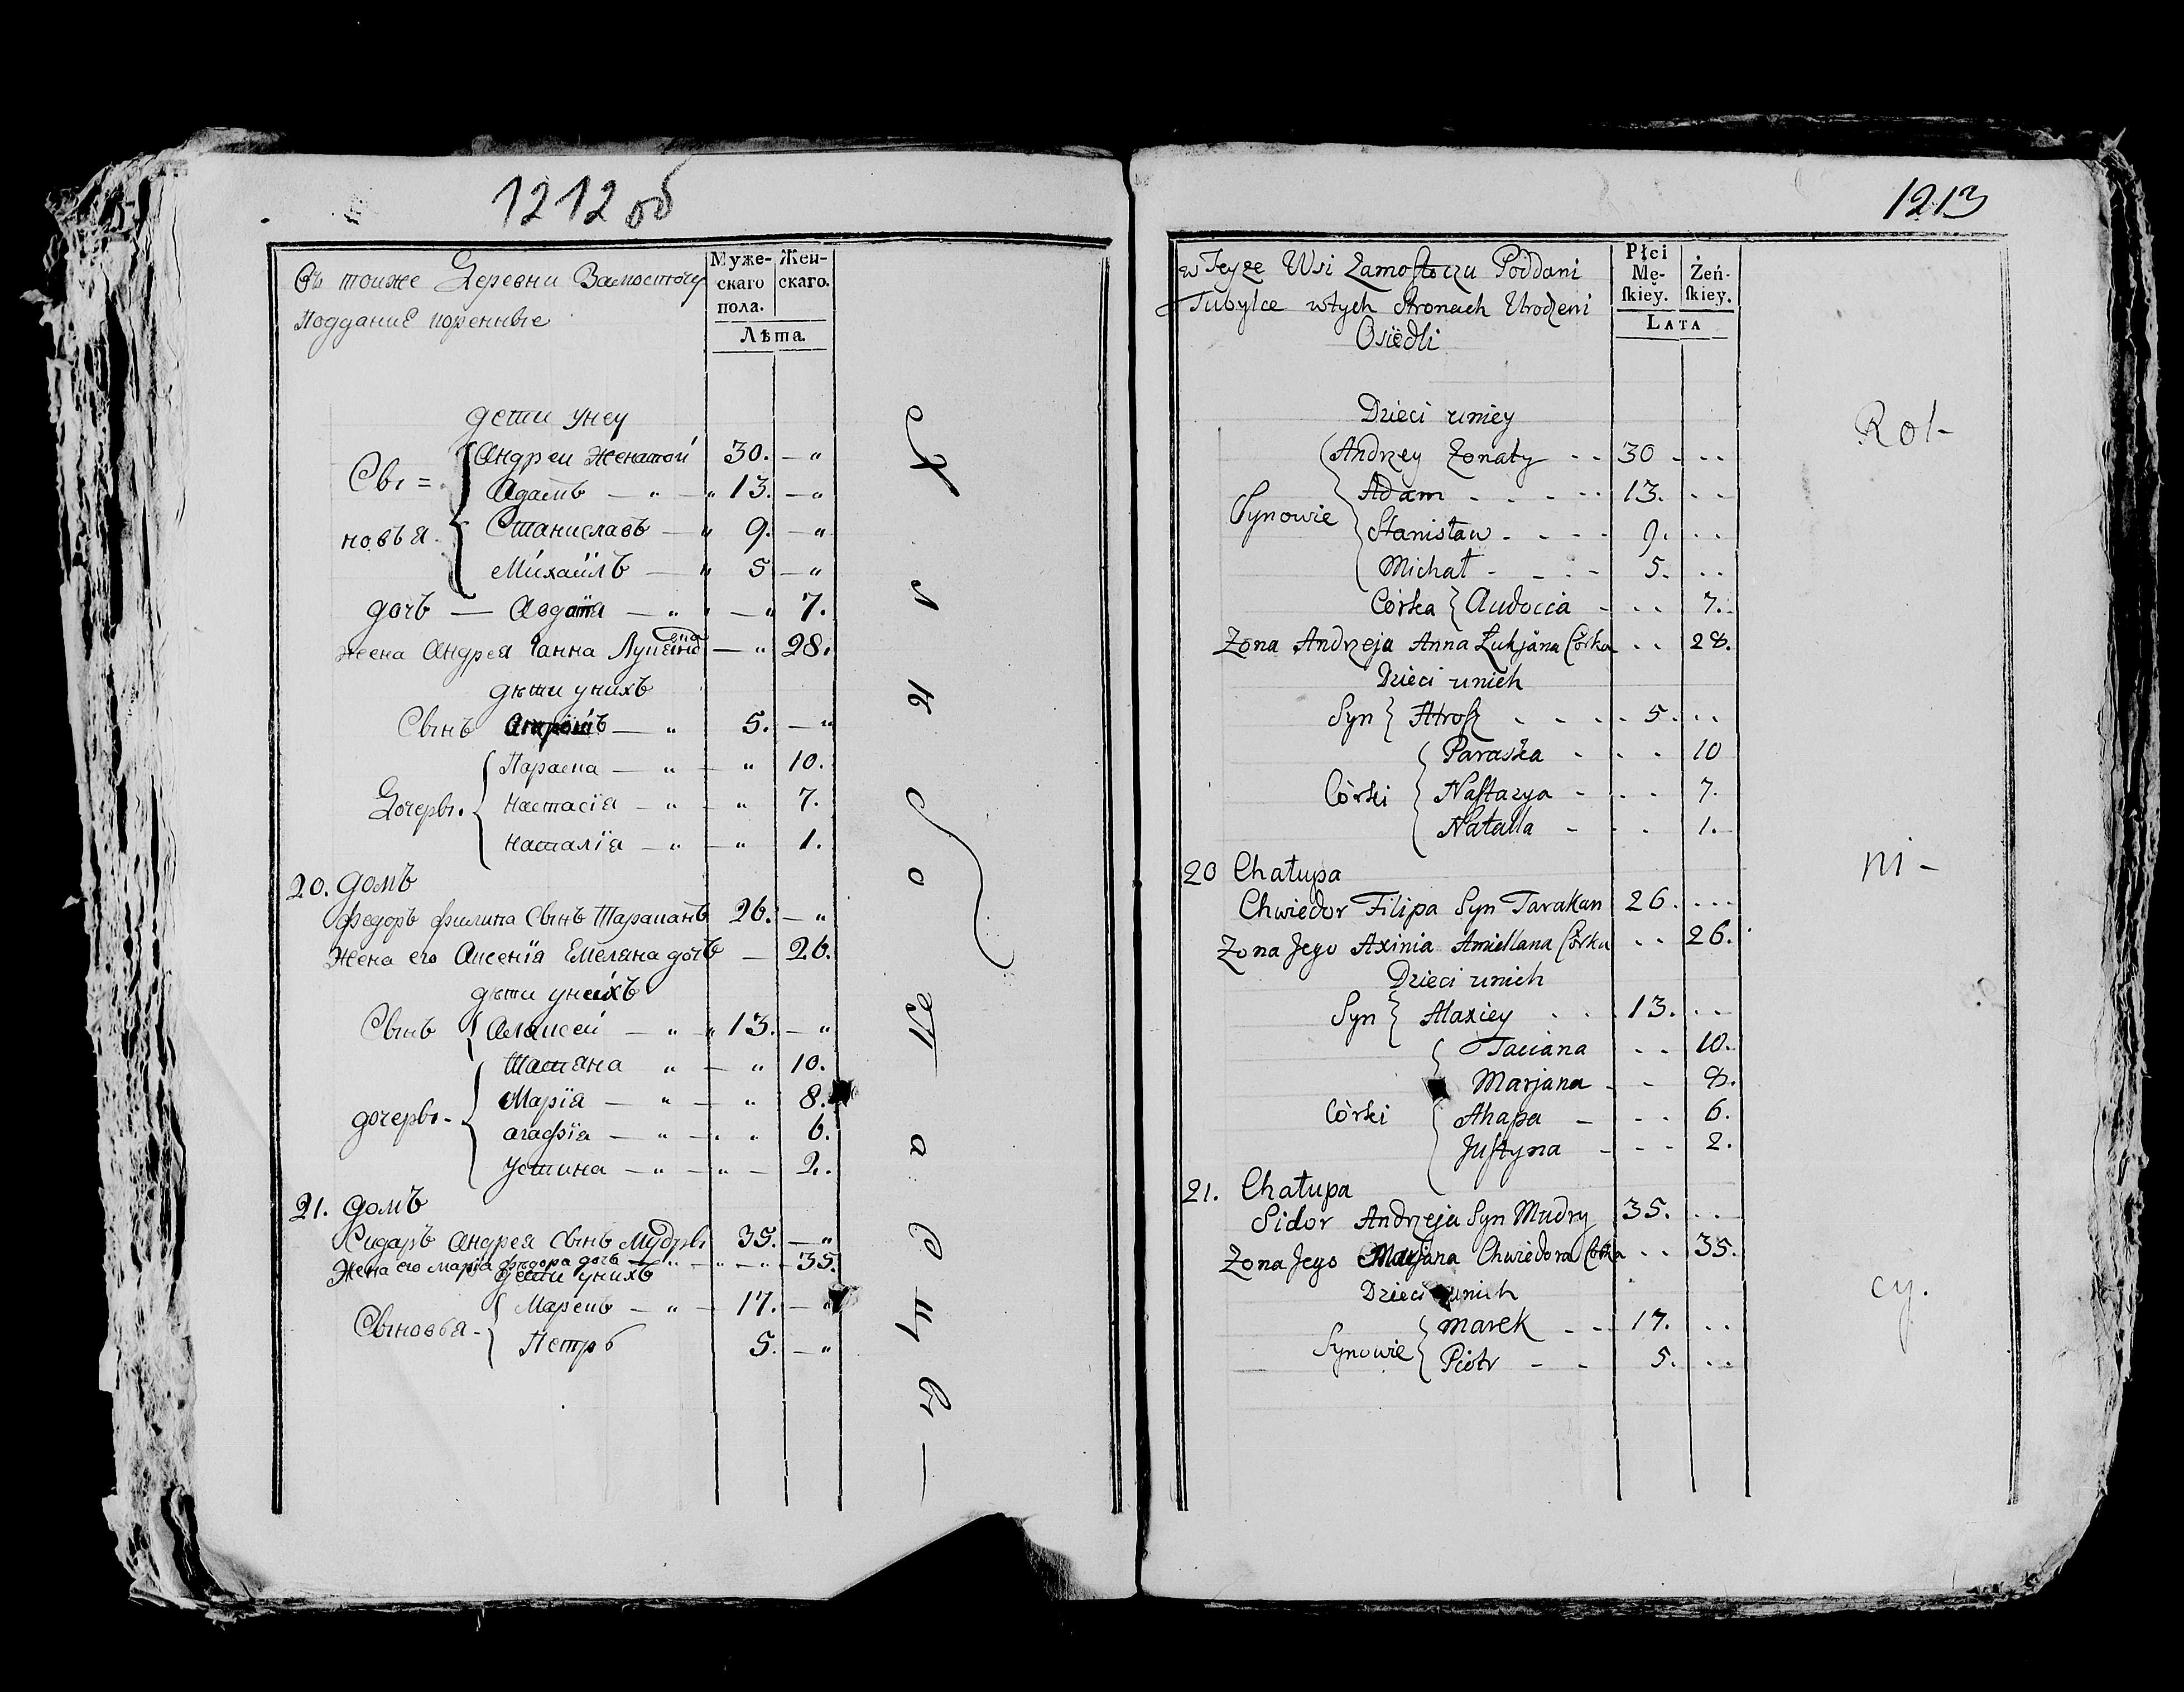 1212 об
Въ тоиже Деревни Замосточу
Поддание коренные
Муже-
скаго
пола.
Жен-
скаго.
Лѣта.
дети унеу
Сы=
новья.
Андреи женатой 30. — "
Адамъ — " — " 13. — "
Станиславъ — " 9. — "
Михайлъ — " 5 — "
дочь — Авдотя — " — " 7.
жена Андрея Ганна — " 28.
дѣти унихъ
Сынъ — " 5. — "
Дочеры.
Параска — " — " 10.
Настасія — " — " 7.
Наталія — " — " 1.
20. домъ
Федоръ Филипа Сынъ Тараканъ 26. — "
Жена его Аксенія Емеляна дочь — 26.
дѣти унеихъ
Сынъ Алаксей — " — " 13. — "
дочеры-
Татяна " — " 10.
Марія — " — " 8.
агафія — " — " 6.
Устина — " — " — 2.
21. домъ
Сидаръ Андрея Сынъ Мудры 35. — "
Жена его марія федора дочь — " — " — " — 35.
дети унихъ
Сыновья-
Марекъ — " — 17. — "
Петръ 5. — "
1213
w Teyże Wsi Zamostoczu Poddani
Tubylce wtych Stronach Urodzeni
Osiedli
Płci
Mę-
skiey.
Żeń-
skiey.
LATA
Dzieci uniey
Synowie
Andrzey Zonaty - - 30 - - -
Adam - - - - - 13. - -
Stanisław - - - - 9. - -
Michał - - - - 5. - -
Córka Audocia - - - 7.
Zona Andrzeja Anna Łukjana Córka - - 28.
Dzieci unich
Syn Atrosz - - - - 5. - -
Córki
Paraska - - - 10
Nastazya - - - 7.
Natalla - - - 1.
20 Chałupa
Chwiedor Filipa Syn Tarakan 26. - - -
Zona Jego Axinia Amiellana Córka - - 26.
Dzieci unich
Syn Alaxiey - - - 13. - -
Córki
Taciana - - 10.
Marjana - - 8.
Ahapa - - - 6.
Justyna - - - 2.
21. Chałupa
Sidor Andrzeja Syn Mudry 35. - -
Zona Jego Marjana Chwiedora Córka - - 35.
Dzieci unich
Synowie
Marek - - - 17. - -
Piotr - - 5. - -
Rol-
ni-
cy.